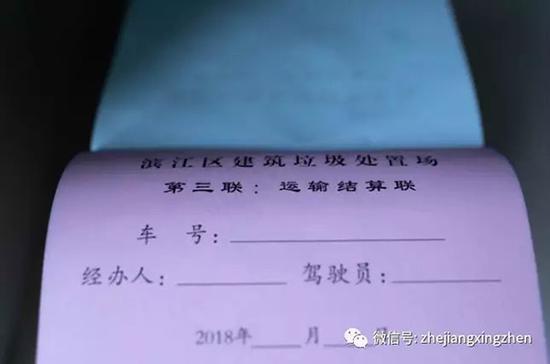 滨江区建筑垃圾处置场
第三联：运输结算联
车 号：
经办人： 驾驶员：
2018年 月 日
微信号: zhejiangxingzhen